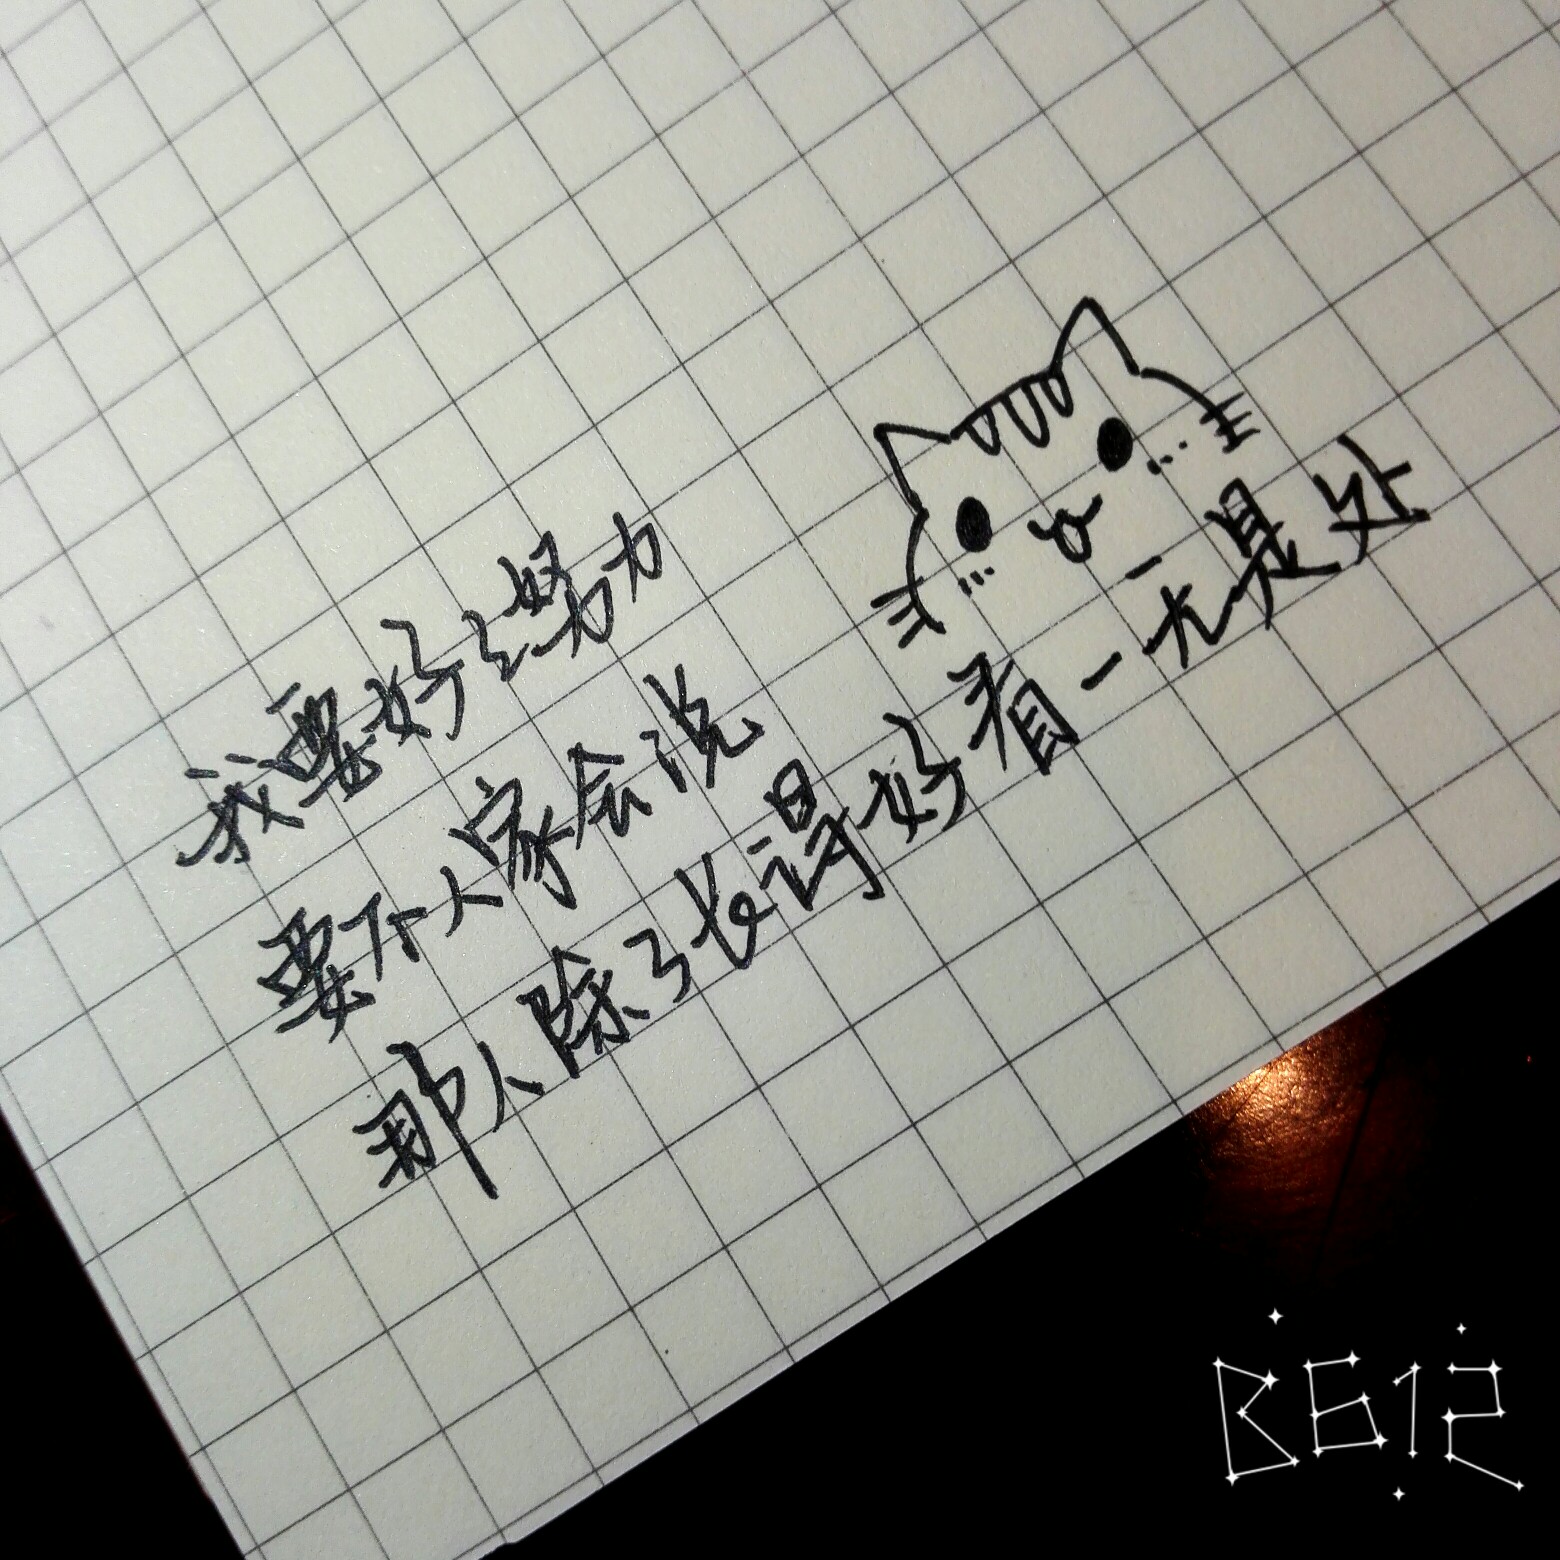 我要好好努力
要不人家会说
那人除了长得好看一无是处
B612